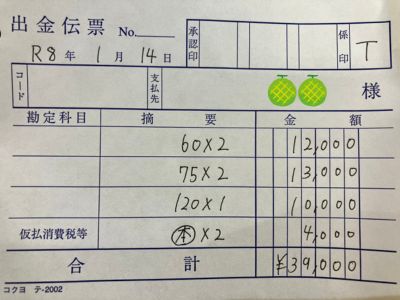 出金伝票 No.
承認印 係印 T
R8年 1月 14日
コード 支払先 様
勘定科目 摘要 金額
60×2 12,000
75×2 13,000
120×1 10,000
仮払消費税等 本×2 4,000
合計 ¥39,000
コクヨ テ-2002